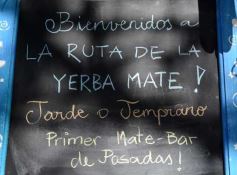 Bienvenidos a
LA RUTA DE LA
YERBA MATE!
Tarde o Temprano
Primer Mate-Bar
de Posadas!